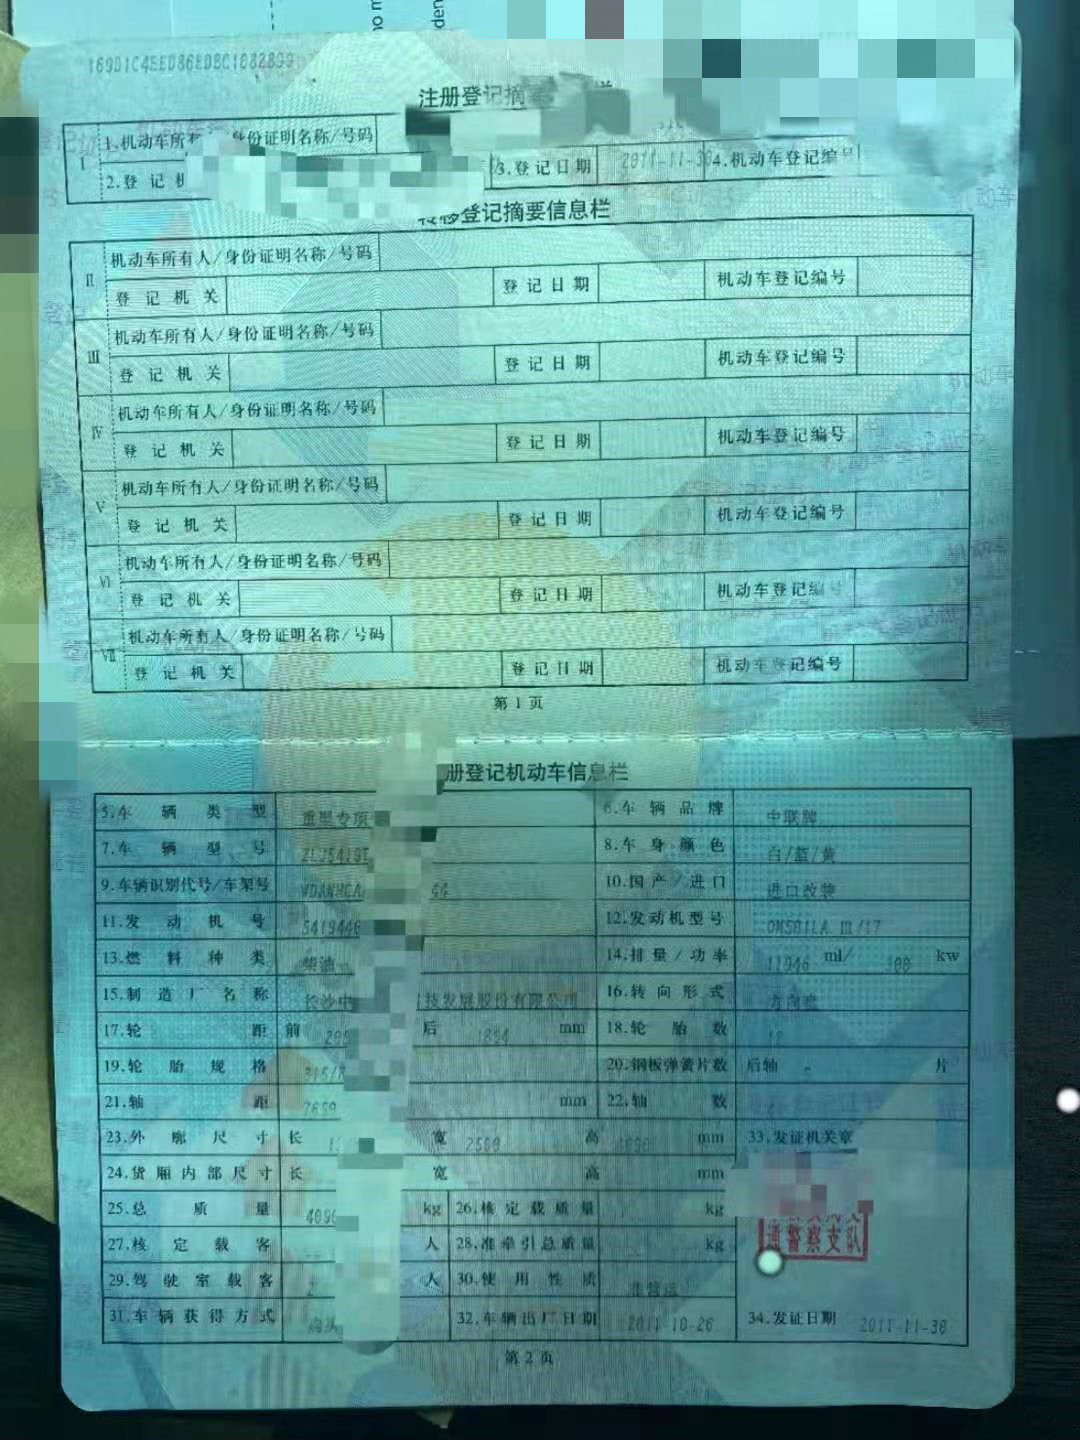 no m
den
169D1C4EED86EDBC1882899
注册登记摘
1 1.机动车所 身份证明名称/号码
2.登记机 3.登记日期 2011-11-30 4.机动车登记编号
移登记摘要信息栏
II 机动车所有人/身份证明名称/号码
登记机关 登记日期 机动车登记编号
III 机动车所有人/身份证明名称/号码
登记机关 登记日期 机动车登记编号
IV 机动车所有人/身份证明名称/号码
登记机关 登记日期 机动车登记编号
V 机动车所有人/身份证明名称/号码
登记机关 登记日期 机动车登记编号
VI 机动车所有人/身份证明名称/号码
登记机关 登记日期 机动车登记编号
VII 机动车所有人/身份证明名称/号码
登记机关 登记日期 机动车登记编号
第1页
册登记机动车信息栏
5.车辆类型 重型专项 6.车辆品牌 中联牌
7.车辆型号 ZLJ5419T 8.车身颜色 白/蓝/黄
9.车辆识别代号/车架号 WDANHCA 44 10.国产/进口 进口改装
11.发动机号 5419446 12.发动机型号 OM501LA.III/17
13.燃料种类 柴油 14.排量/功率 11946 ml/ 300 kw
15.制造厂名称 长沙中 技发展股份有限公司 16.转向形式 方向盘
17.轮距 前 后 1834 mm 18.轮胎数 12
19.轮胎规格 315/8 20.钢板弹簧片数 后轴 - 片
21.轴距 mm 22.轴数
23.外廓尺寸 长 宽 2500 高 mm 33.发证机关章
24.货厢内部尺寸 长 宽 高 mm
25.总质量 kg 26.核定载质量 kg
通警察支队
27.核定载客 人 28.准牵引总质量 kg
29.驾驶室载客 2 人 30.使用性质 非营运
31.车辆获得方式 购买 32.车辆出厂日期 2011-10-26 34.发证日期 2011-11-30
第2页